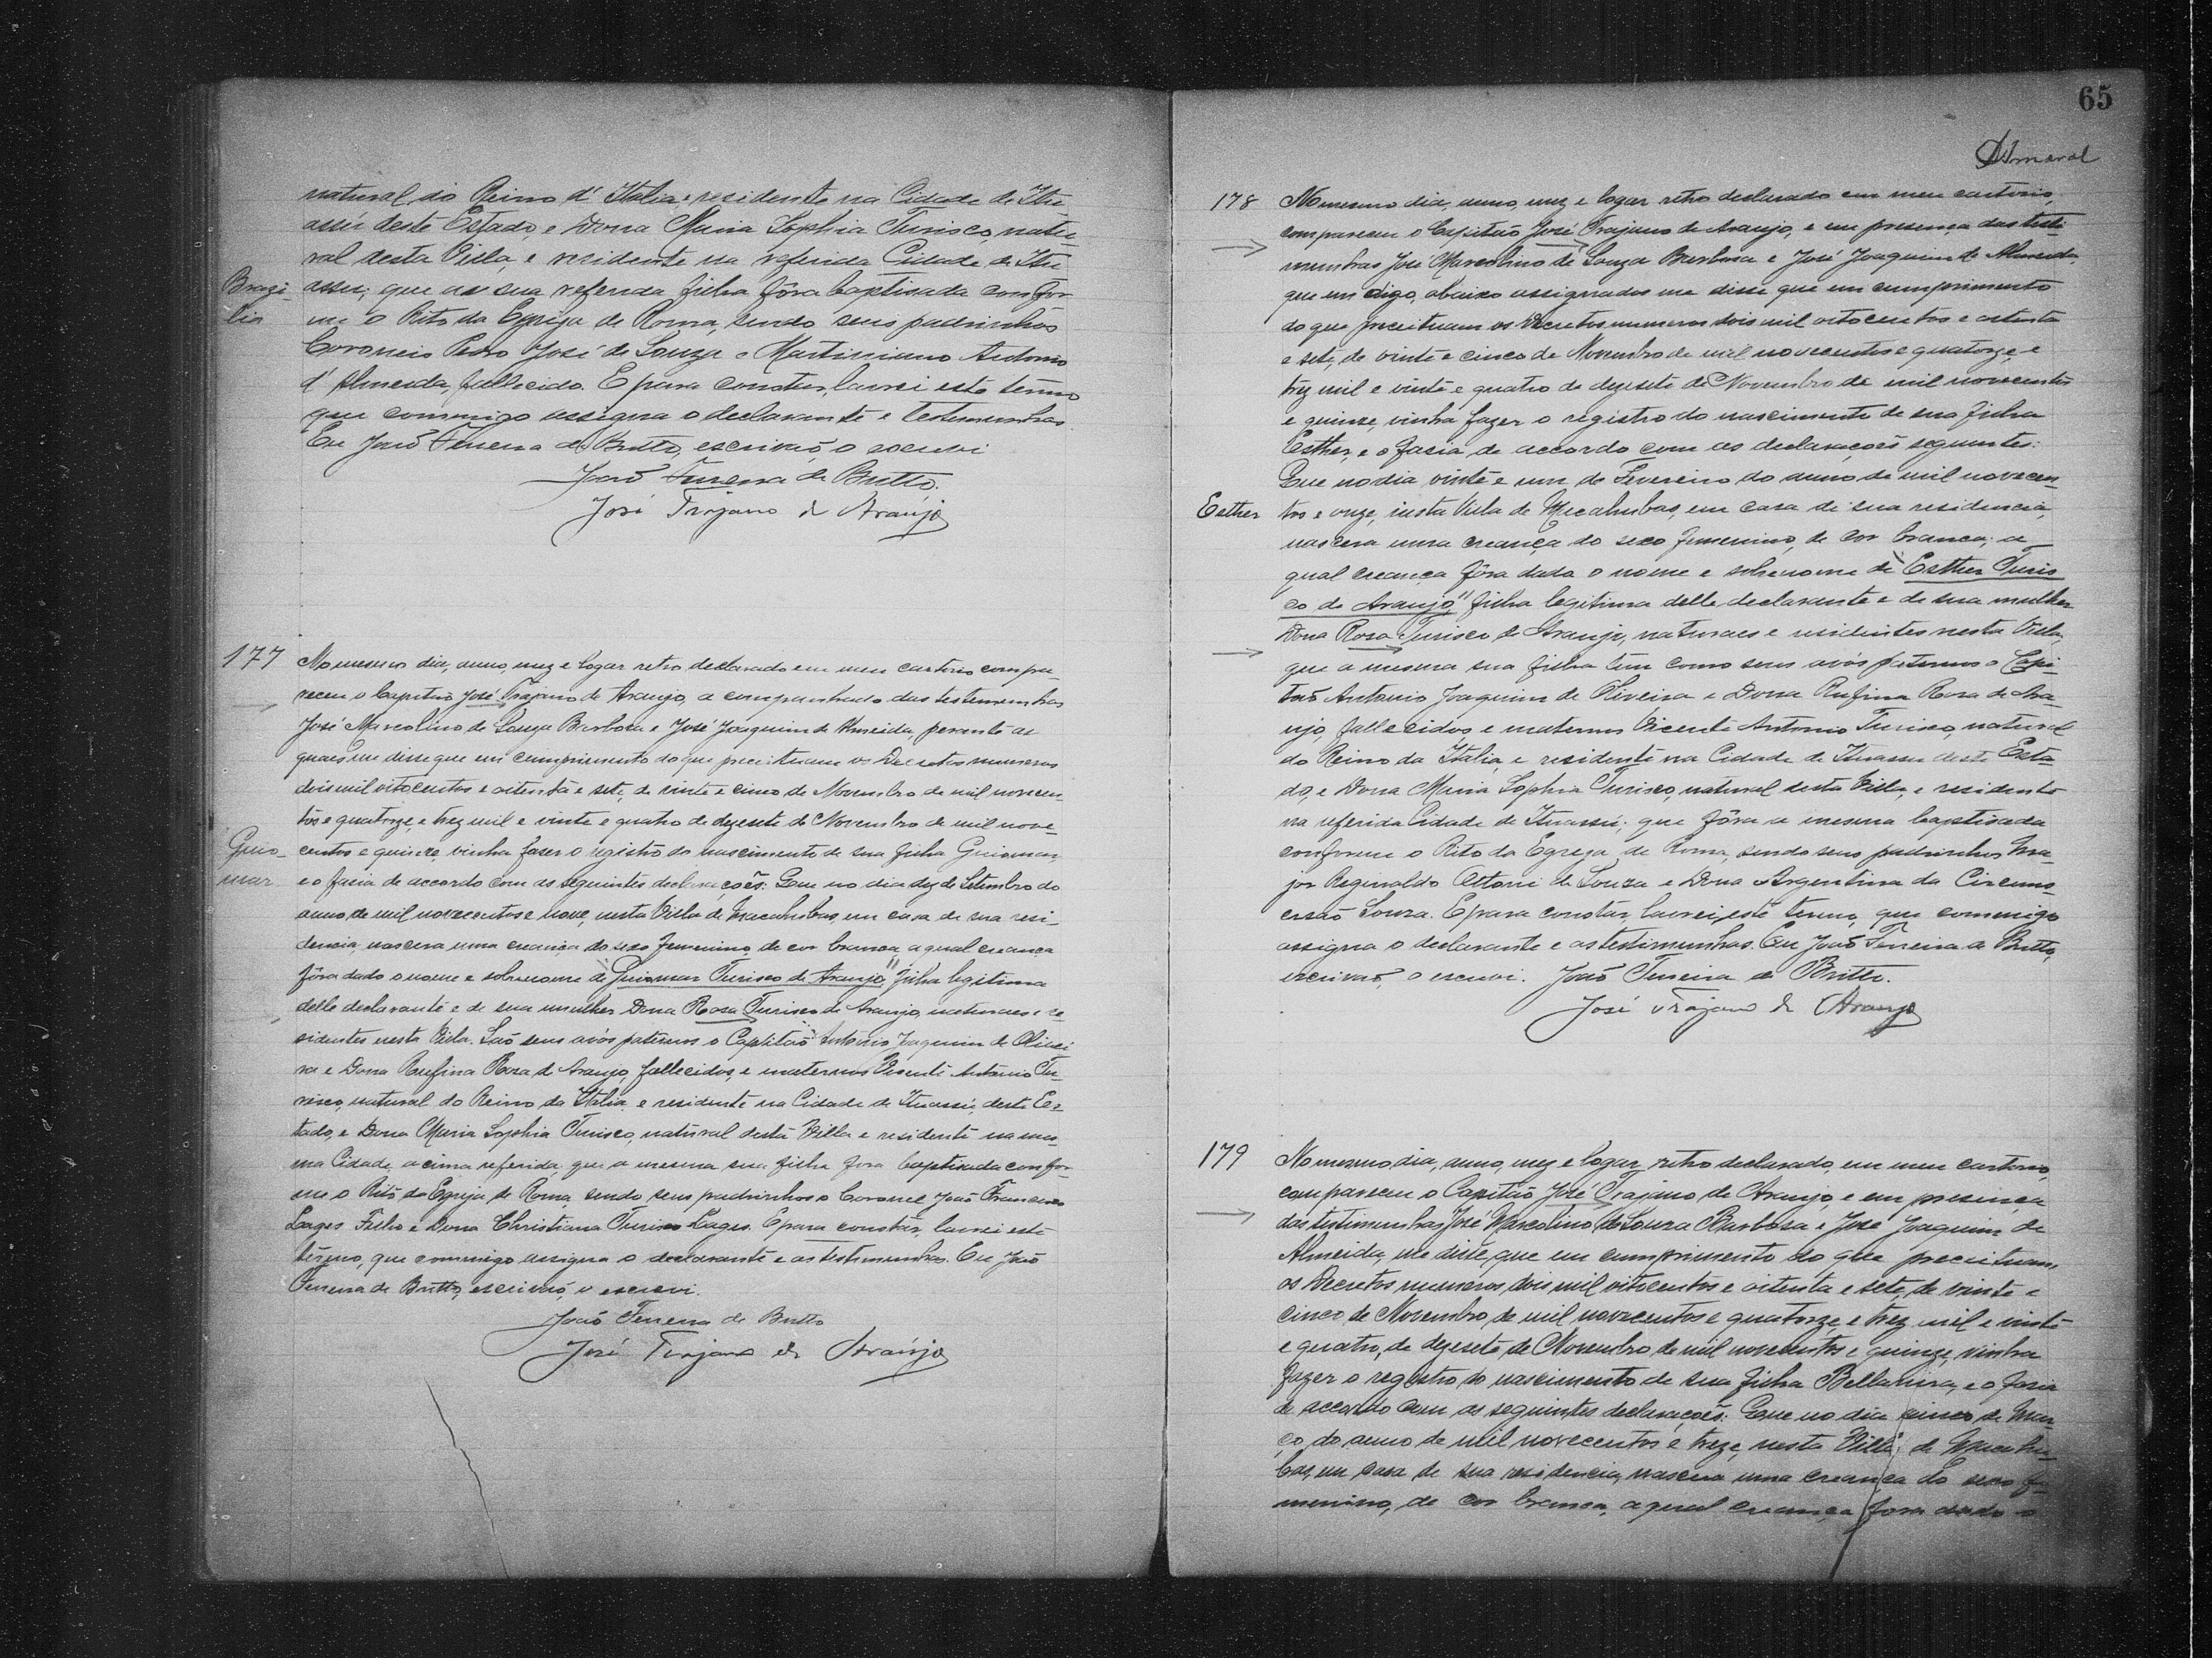 natural do Reino d' Italia e residente na Cidade de Itu
assú deste Estado, e Dona Maria Sophia Turisco, natu-
ral desta Villa, e residente na referida Cidade de Itu
Brazi-
lia
assú; que a sua referida filha fôra baptisada confor
me o Rito da Egreja de Roma, sendo seus padrinhos
Coroneis Pedro José de Souza e Martiniano Antonio
d' Almeida, fallecido. E para constar, lavrei este termo
que commigo assigna o declarante e testemunhas.
Eu João Ferreira de Britto, escrivão, o escrevi
João Ferreira de Britto.
José Trajano de Araujo
177 No mesmo dia, anno, mez e logar retro declarado em meu cartorio compa-
receu o Capitão José Trajano de Araujo, acompanhado das testemunhas
José Marcolino de Souza Barbosa e José Joaquim de Almeida, perante as
quaes me disse que em cumprimento do que preceituam os Decretos numeros
dois mil oitocentos e oitenta e sete, de vinte e cinco de Novembro de mil novecen-
tos e quatorze, e trez mil e vinte e quatro de dezesete de Novembro de mil nove-
Guio-
mar
centos e quinze vinha faser o registro do nascimento de sua filha Guiomar
e o fasia de accordo com as seguintes declarações: Que no dia dez de Setembro do
anno de mil novecentos e nove, nesta Villa de Macahubas, em casa de sua resi-
dencia, nascera uma creança do sexo femenino, de cor branca, a qual creança
fôra dado o nome e sobrenome de "Guiomar Turisco de Araujo," filha legitima
delle declarante e de sua mulher Dona Rosa Turisco de Araujo, naturaes e re-
sidentes nesta Villa. São seus avós paternos o Capitão Antonio Joaquim de Olivei
ra e Dona Rufina Rosa de Araujo, fallecidos, e maternos Vicente Antonio Tu-
risco, natural do Reino da Italia e residente na Cidade de Ituassú, deste Es-
tado, e Dona Maria Sophia Turisco, natural desta Villa e residente na mes-
ma Cidade acima referida, que a mesma sua filha fora baptisada confor-
me o Rito da Egreja de Roma, sendo seus padrinhos o Coronel João Francisco
Lages Filho e Dona Christiana Turisco Lages. E para constar, lavrei este
termo, que commigo assigna o declarante e as testemunhas. Eu João
Ferreira de Britto, escrivão, o escrevi.
João Ferreira de Britto
José Trajano de Araújo
65
Amaral
178 No mesmo dia, anno, mez e logar retro declarado em meu cartorio,
compareceu o Capitão José Trajano de Araujo, e em presença das teste
munhas José Marcolino de Souza Barbosa e José Joaquim de Almeida,
que em digo, abaixo assignados me disse que em cumprimento
do que preceituam os Decretos numeros dois mil oitocentos e oitenta
e sete, de vinte e cinco de Novembro de mil novecentos e quatorze, e
trez mil e vinte e quatro de dezesete de Novembro de mil novecentos
e quinze, vinha fazer o registro do nascimento de sua filha
Esther, e o fasia de accordo com as declarações seguintes:
Que no dia vinte e um de Fevereiro do anno de mil novecen
Esther
tos e onze, nesta Villa de Macahubas, em casa de sua residencia,
nascera uma creança do sexo femenino, de cor branca, a
qual creança fôra dada o nome e sobrenome de "Esther Turis
co de Araujo," filha legitima delle declarante e de sua mulher
Dona Rosa Turisco de Araujo, naturaes e residentes nesta Villa,
que a mesma sua filha tem como seus avós paternos o Capi-
tão Antonio Joaquim de Oliveira e Dona Rufina Rosa de Ara-
ujo, fallecidos, e maternos Vicente Antonio Turisco, natural
do Reino da Italia, e residente na Cidade de Ituassu deste Esta-
do, e Dona Maria Sophia Turisco, natural desta Villa, e residente
na referida Cidade de Ituassú; que fôra a mesma baptisada
conforme o Rito da Egreja de Roma, sendo seus padrinhos Ma-
jor Reginaldo Ottoni de Souza e Dona Argentina da Circum-
cisão Souza. E para constar, lavrei este termo, que commigo
assigna o declarante e as testimunhas. Eu João Ferreira de Britto,
escrivão, o escrevi. João Ferreira de Britto.
José Trajano de Araujo
179 No mesmo dia, anno, mez e logar retro declarado, em meu cartorio,
compareceu o Capitão José Trajano de Araujo, e em presença
das testimunhas José Marcolino de Souza Barbosa e José Joaquim de
Almeida, me disse, que em cumprimento do que preceituam,
os Decretos numeros dois mil oitocentos e oitenta e sete, de vinte e
cinco de Novembro de mil novecentos e quatorze, e trez mil e vinte
e quatro, de dezesete de Novembro de mil novecentos e quinze, vinha
fazer o registro do nascimento de sua filha Bellanira, e o fasia
de accordo com as seguintes declarações: Que no dia cinco de Mar-
ço do anno de mil novecentos e treze, nesta Villa de Macahu-
bas, em casa de sua residencia, nascera uma creança do sexo fe-
menino, de cor branca, a qual creança fora dado o